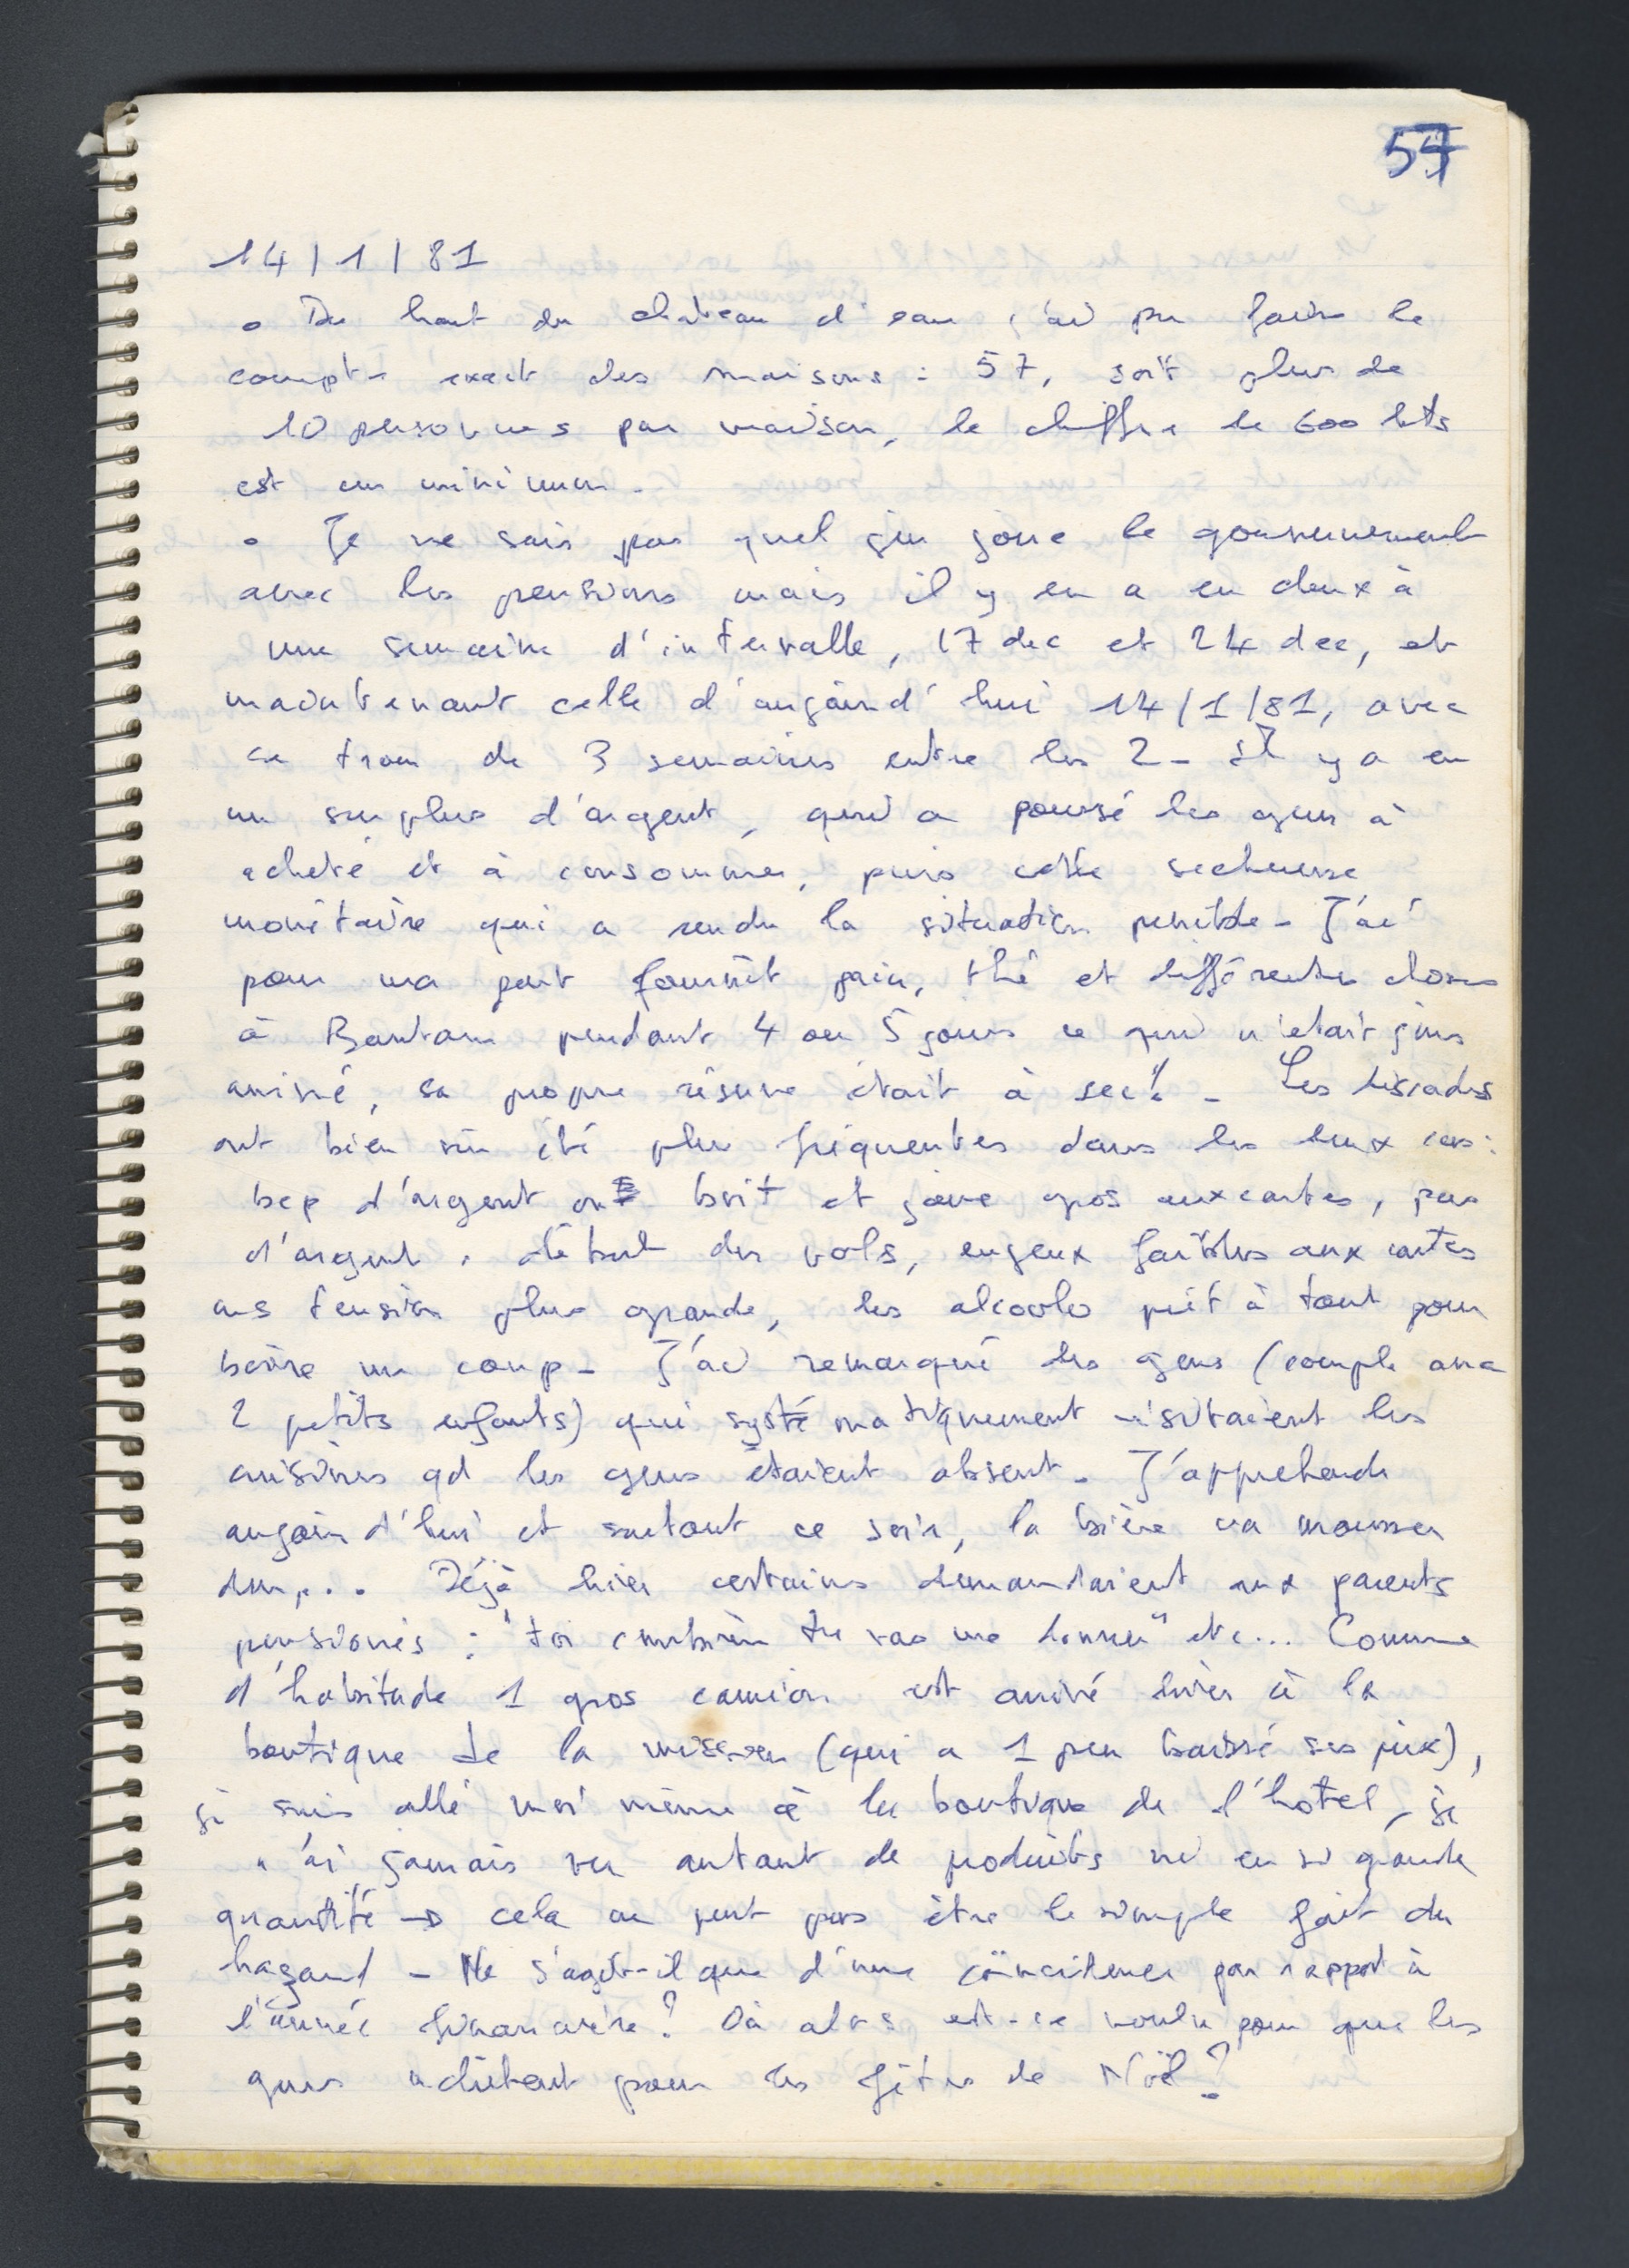 57
14/1/81
• Du haut du chateau d'eau j'ai pu faire le
compte exact des maisons : 57, soit plus de
10 personnes par maison, le chiffre de 600 hts
est un minimum.
• Je ne sais pas quel jeu joue le gouvernement
avec les pensions mais il y en a eu deux à
une semaine d'intervalle, 17 dec et 24 dec, et
maintenant celle d'aujourd'hui 14/1/81, avec
ce trou de 3 semaines entre les 2 - Il y a eu
un surplus d'argent, qui a poussé les gens à
acheté et à consommer, puis cette secheresse
monétaire qui a rendu la situation penible - J'ai
pour ma part fournit pain, thé et différentes choses
à Bantam pendant 4 ou 5 jours ce qui n'etait jms
arrivé, sa propre réserve était à sec! - Les
ont bien sûr été plus fréquentes dans les deux cas :
bcp d'argent on boit et joue gros aux cartes, pas
d'argent : début des vols, enjeux faibles aux cartes
ms tension plus grande, les alcoolos prêt à tout pour
boire un coup - J'ai remarqué des gens (couple avec
2 petits enfants) qui systématiquement visitaient les
cuisines qd les gens étaient absent - J'apprehende
aujourd'hui et surtout ce soir, la bière va mousser
dur... Déjà hier certains demandaient aux parents
pensionés : "toi combien tu vas me donner" etc... Comme
d'habitude 1 gros camion est arrivé hier à la
boutique de la mission (qui a 1 peu baissé ses prix),
je suis allé moi même à la boutique de l'hotel, je
n'ai jamais vu autant de produits ni en si grande
quantité → cela ne peut pas être le simple fait du
hazard - Ne s'agit-il que d'une coïncidence par rapport à
l'année financière? Ou alors est-ce voulu pour que les
gens achètent pour les fêtes de Noël?